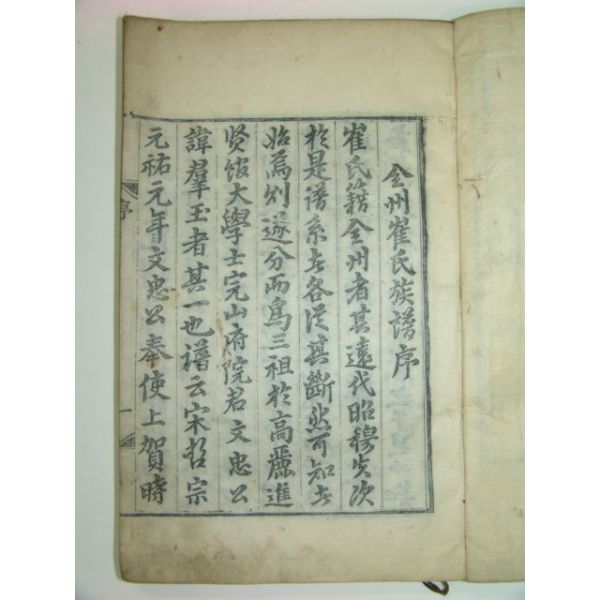 全州崔氏族譜序
崔氏籍全州者其遠代昭穆失次
於是譜系者各從其斷然可知者
始爲別遂分而爲三祖於高麗進
賢館大學士完山府院君文忠公
諱羣玉者其一也譜云宋哲宗
元祐元年文忠公奉使上賀時
序
一